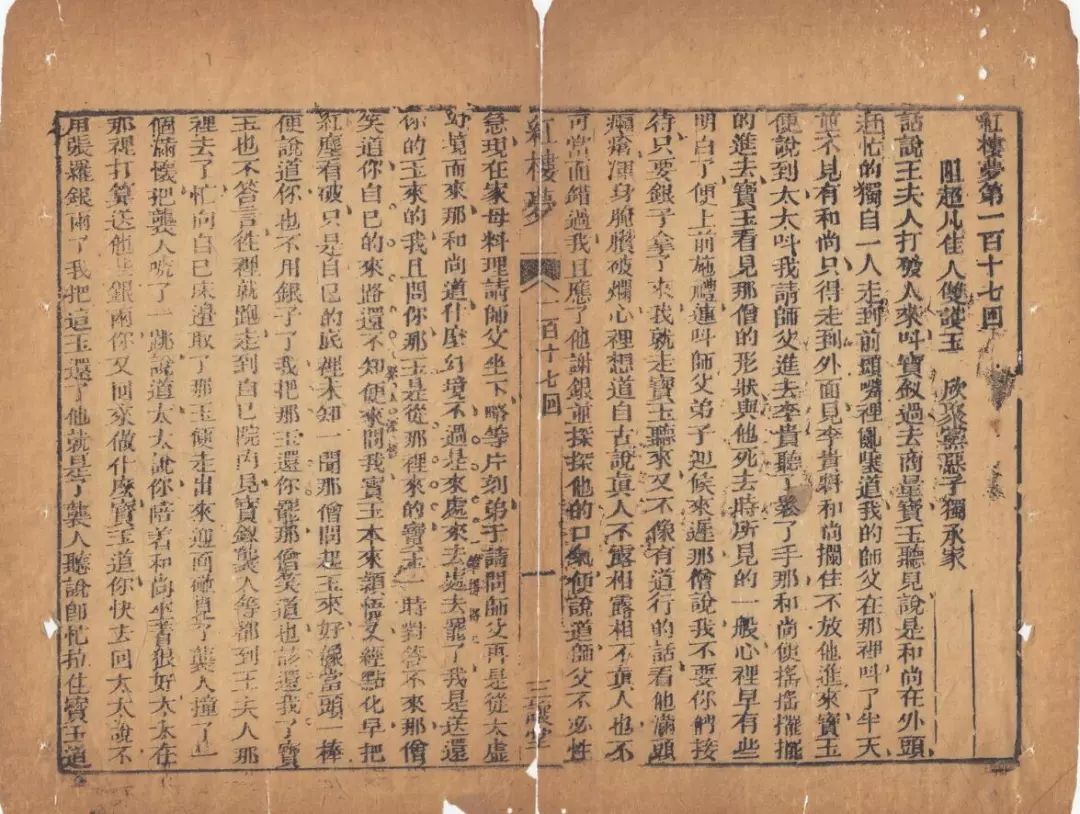 紅樓夢第一百十七回
阻超凡佳人雙護玉 欣聚黨惡子獨承家
話說王夫人打發人來叫寶釵過去商量寶玉聽見說是和尚在外頭
赶忙的獨自一人走到前頭嘴裡亂嚷道我的師父在那裡叫了半天
並不見有和尚只得走到外面見李貴將和尚攔住不放他進來寶玉
便說到太太叫我請師父進去李貴聽了鬆了手那和尚便搖搖擺擺
的進去寶玉看見那僧的形狀與他死去時所見的一般心裡早有些
明白了便上前施禮連叫師父弟子迎候來遲那僧說我不要你們接
待只要銀子拿了來我就走寶玉聽來又不像有道行的話看他滿頭
癩瘡渾身腌臢破爛心裡想道自古說真人不露相露相不真人也不
可當面錯過我且應了他謝銀並探探他的口氣便說道師父不必性
紅樓夢 一百十七回 一 三讓堂
急現在家母料理請師父坐下略等片刻弟子請問師父再是從太虛
幻境而來那和尚道什麼幻境不過是來處來去處去罷了我是送還
你的玉來的我且問你那玉是從那裡來的寶玉一時對答不來那僧
笑道你自己的來路還不知便來問我寶玉本來穎悟又經點化早把
紅塵看破只是自己的底裡未知一聞那僧問起玉來好像當頭一棒
便說道你也不用銀子了我把那玉還你罷那僧笑道也該還我了寶
玉也不答言徃裡就跑走到自己院內見寶釵襲人等都到王夫人那
裡去了忙向自己床邊取了那玉便走出來迎面碰見了襲人撞了一
個滿懷把襲人唬了一跳說道太太說你陪着和尚坐着狠好太太在
那裡打算送他些銀兩你又回來做什麼寶玉道你快去回太太說不
用張羅銀兩了我把這玉還了他就是了襲人聽說即忙拉住寶玉道